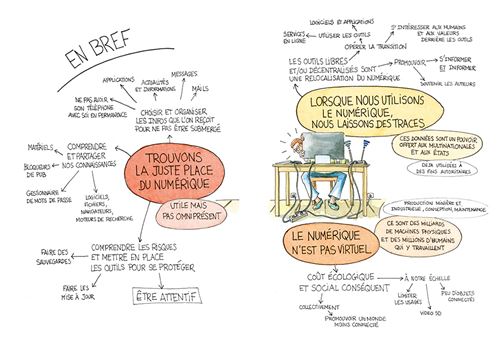 EN BREF
MESSAGES
MAILS
ACTUALITÉS
ET INFORMATIONS
APPLICATIONS
NE PAS AVOIR
SON TÉLÉPHONE
AVEC SOI EN PERMANENCE
CHOISIR ET ORGANISER
LES INFOS QUE L'ON REÇOIT
POUR NE PAS ÊTRE SUBMERGÉ
MATÉRIELS
BLOQUEURS
DE PUB
GESTIONNAIRE
DE MOTS DE PASSE
COMPRENDRE
ET PARTAGER
NOS CONNAISSANCES
LOGICIELS,
FICHIERS,
NAVIGATEURS,
MOTEURS DE RECHERCHE
TROUVONS
LA JUSTE PLACE
DU NUMÉRIQUE
UTILE MAIS
PAS OMNIPRÉSENT
COMPRENDRE LES RISQUES
ET METTRE EN PLACE
LES OUTILS POUR SE PROTÉGER
FAIRE DES
SAUVEGARDES
FAIRE LES
MISE À JOUR
ÊTRE ATTENTIF
LOGICIELS ET APPLICATIONS
SERVICES
EN LIGNE
UTILISER LES OUTILS
OPÉRER LA TRANSITION
S'INTÉRESSER AUX HUMAINS
ET AUX VALEURS
DERRIÈRE LES OUTILS
LES OUTILS LIBRES
ET/OU DÉCENTRALISÉS SONT
UNE RELOCALISATION DU NUMÉRIQUE
PROMOUVOIR
S'INFORMER
ET INFORMER
SOUTENIR LES AUTEURS
LORSQUE NOUS UTILISONS
LE NUMÉRIQUE,
NOUS LAISSONS DES TRACES
CES DONNÉES SONT UN POUVOIR
OFFERT AUX MULTINATIONALES
ET AUX ÉTATS
DÉJÀ UTILISÉE À
DES FINS AUTORITAIRES
PRODUCTION MINIÈRE ET
INDUSTRIELLE, CONCEPTION, MAINTENANCE
LE NUMÉRIQUE
N'EST PAS VIRTUEL
CE SONT DES MILLIARDS
DE MACHINES PHYSIQUES
ET DES MILLIONS D'HUMAINS
QUI Y TRAVAILLENT
COÛT ÉCOLOGIQUE
ET SOCIAL CONSÉQUENT
À NOTRE ÉCHELLE
PEU D'OBJETS
CONNECTÉS
LIMITER
LES USAGES
VIDEO SD
COLLECTIVEMENT
PROMOUVOIR UN MONDE
MOINS CONNECTÉ